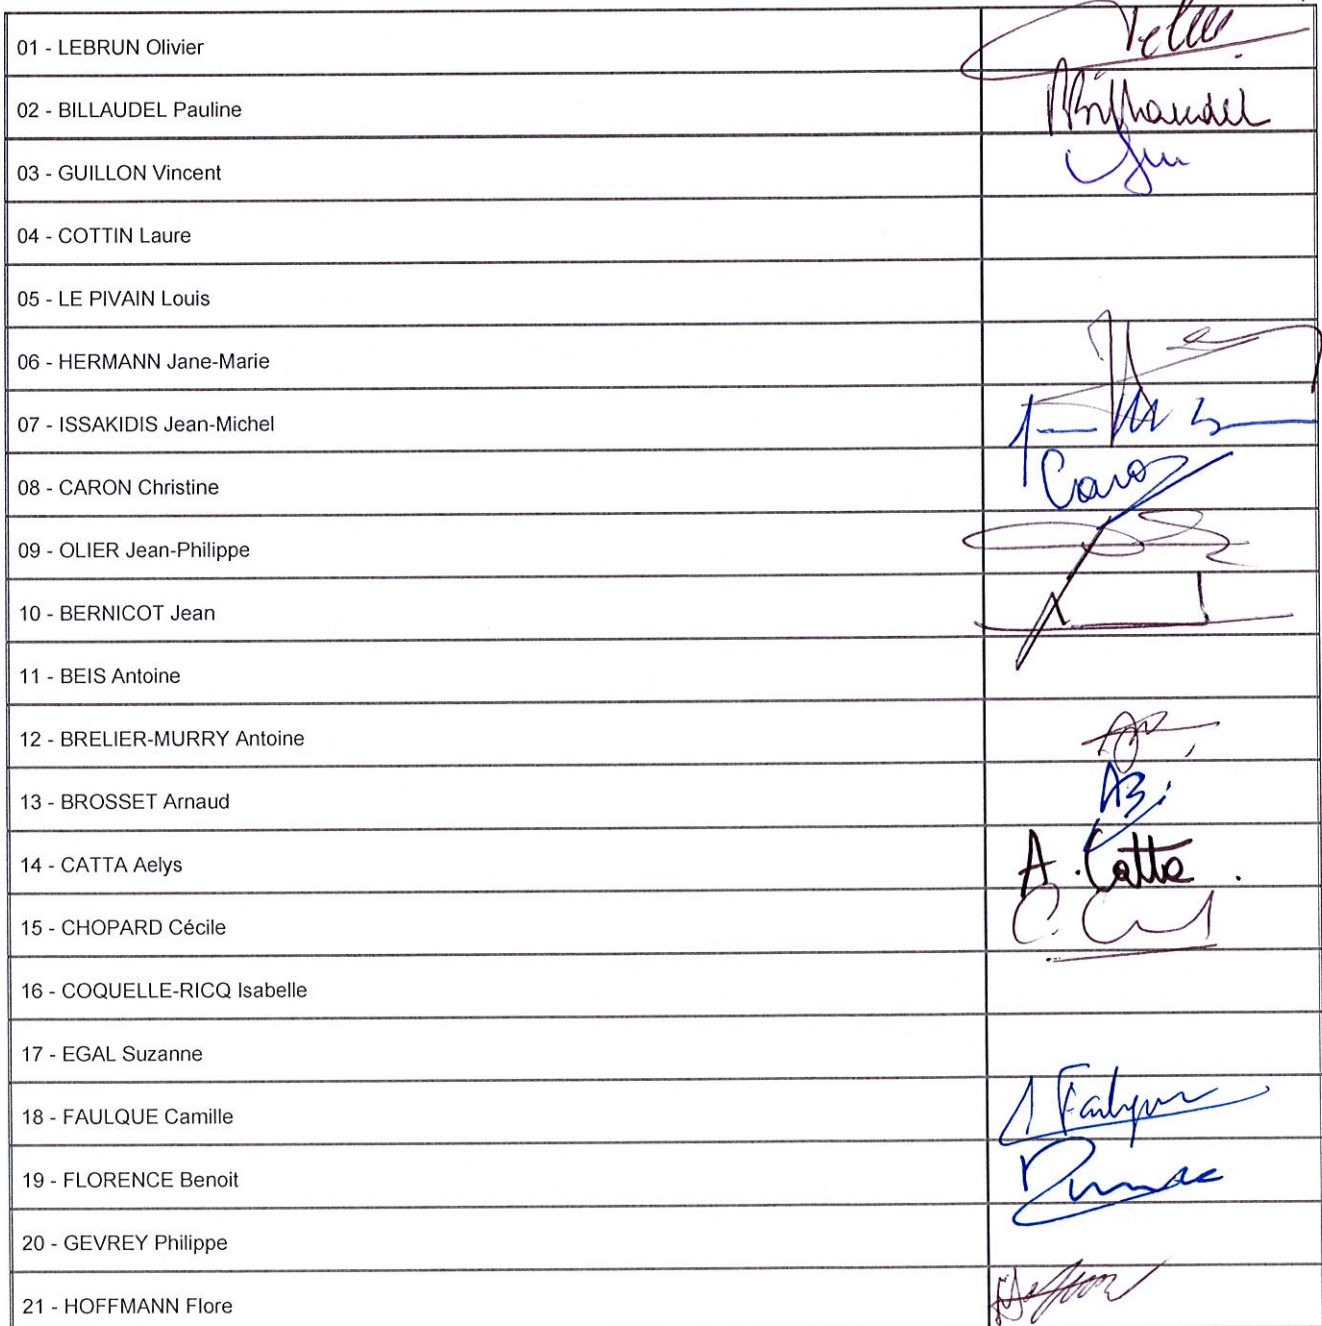 01 - LEBRUN Olivier
02 - BILLAUDEL Pauline
PBillaudel
03 - GUILLON Vincent
04 - COTTIN Laure
05 - LE PIVAIN Louis
06 - HERMANN Jane-Marie
07 - ISSAKIDIS Jean-Michel
08 - CARON Christine
Caron
09 - OLIER Jean-Philippe
10 - BERNICOT Jean
11 - BEIS Antoine
12 - BRELIER-MURRY Antoine
13 - BROSSET Arnaud
AB
14 - CATTA Aelys
A. Catta.
15 - CHOPARD Cécile
16 - COQUELLE-RICQ Isabelle
17 - EGAL Suzanne
18 - FAULQUE Camille
19 - FLORENCE Benoit
20 - GEVREY Philippe
21 - HOFFMANN Flore